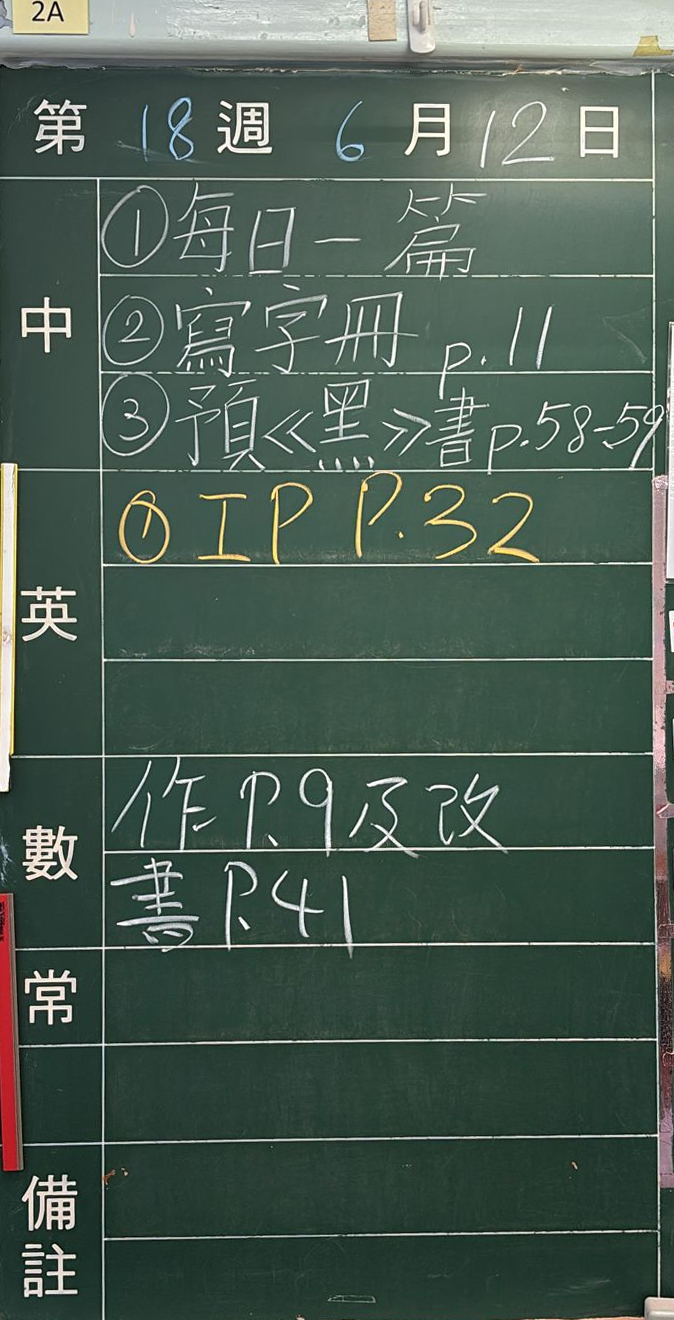 2A
第 18 週 6 月 12 日
中
①每日一篇
②寫字冊 p.11
③預《黑》書p.58-59
英
①IP P.32
數
作P.9及改
書P.41
常
備註